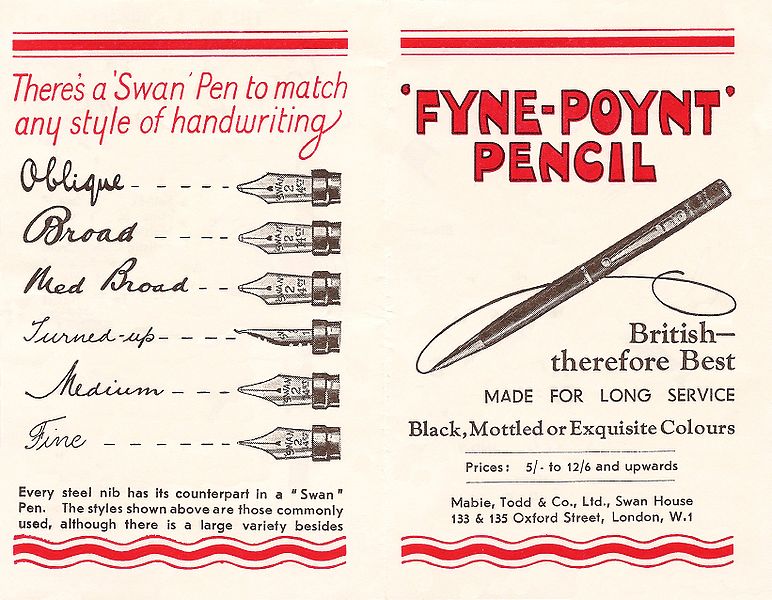 There's a 'Swan' Pen to match
any style of handwriting
Oblique
SWAN
2
14CT
Broad
SWAN
2
14CT
Med Broad
SWAN
2
14CT
Turned-up
Medium
SWAN
2
14CT
Fine
SWAN
2
14CT
Every steel nib has its counterpart in a "Swan"
Pen. The styles shown above are those commonly
used, although there is a large variety besides
'FYNE-POYNT'
PENCIL
British—
therefore Best
MADE FOR LONG SERVICE
Black, Mottled or Exquisite Colours
Prices: 5/- to 12/6 and upwards
Mabie, Todd & Co., Ltd., Swan House
133 & 135 Oxford Street, London, W.1